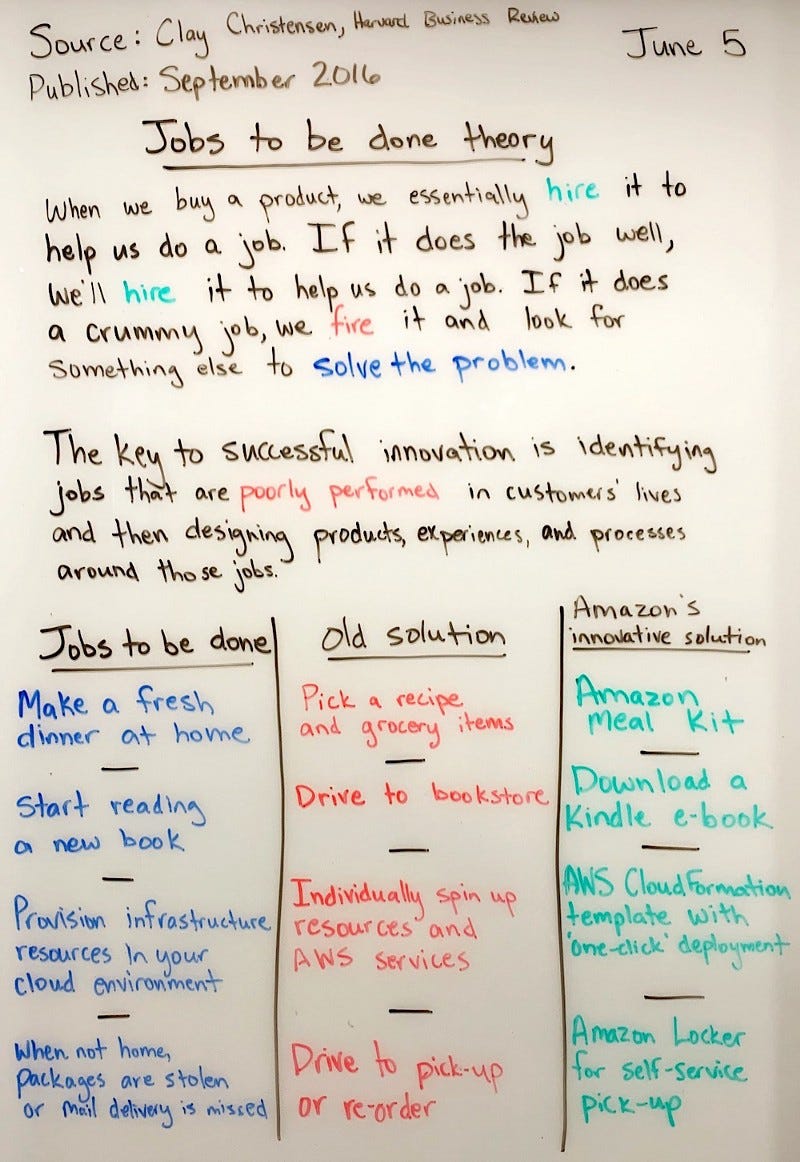 Source: Clay Christensen, Harvard Business Review
June 5
Published: September 2016
Jobs to be done theory
When we buy a product, we essentially hire it to
help us do a job. If it does the job well,
we'll hire it to help us do a job. If it does
a crummy job, we fire it and look for
something else to solve the problem.
The key to successful innovation is identifying
jobs that are poorly performed in customers' lives
and then designing products, experiences, and processes
around those jobs.
Jobs to be done
Make a fresh
dinner at home
Start reading
a new book
Provision infrastructure
resources in your
cloud environment
When not home,
packages are stolen
or mail delivery is missed
Old solution
Pick a recipe
and grocery items
Drive to bookstore
Individually spin up
resources and
AWS services
Drive to pick-up
or re-order
Amazon's
innovative solution
Amazon
Meal Kit
Download a
Kindle e-book
AWS CloudFormation
template with
'one-click' deployment
Amazon Locker
for self-service
pick-up